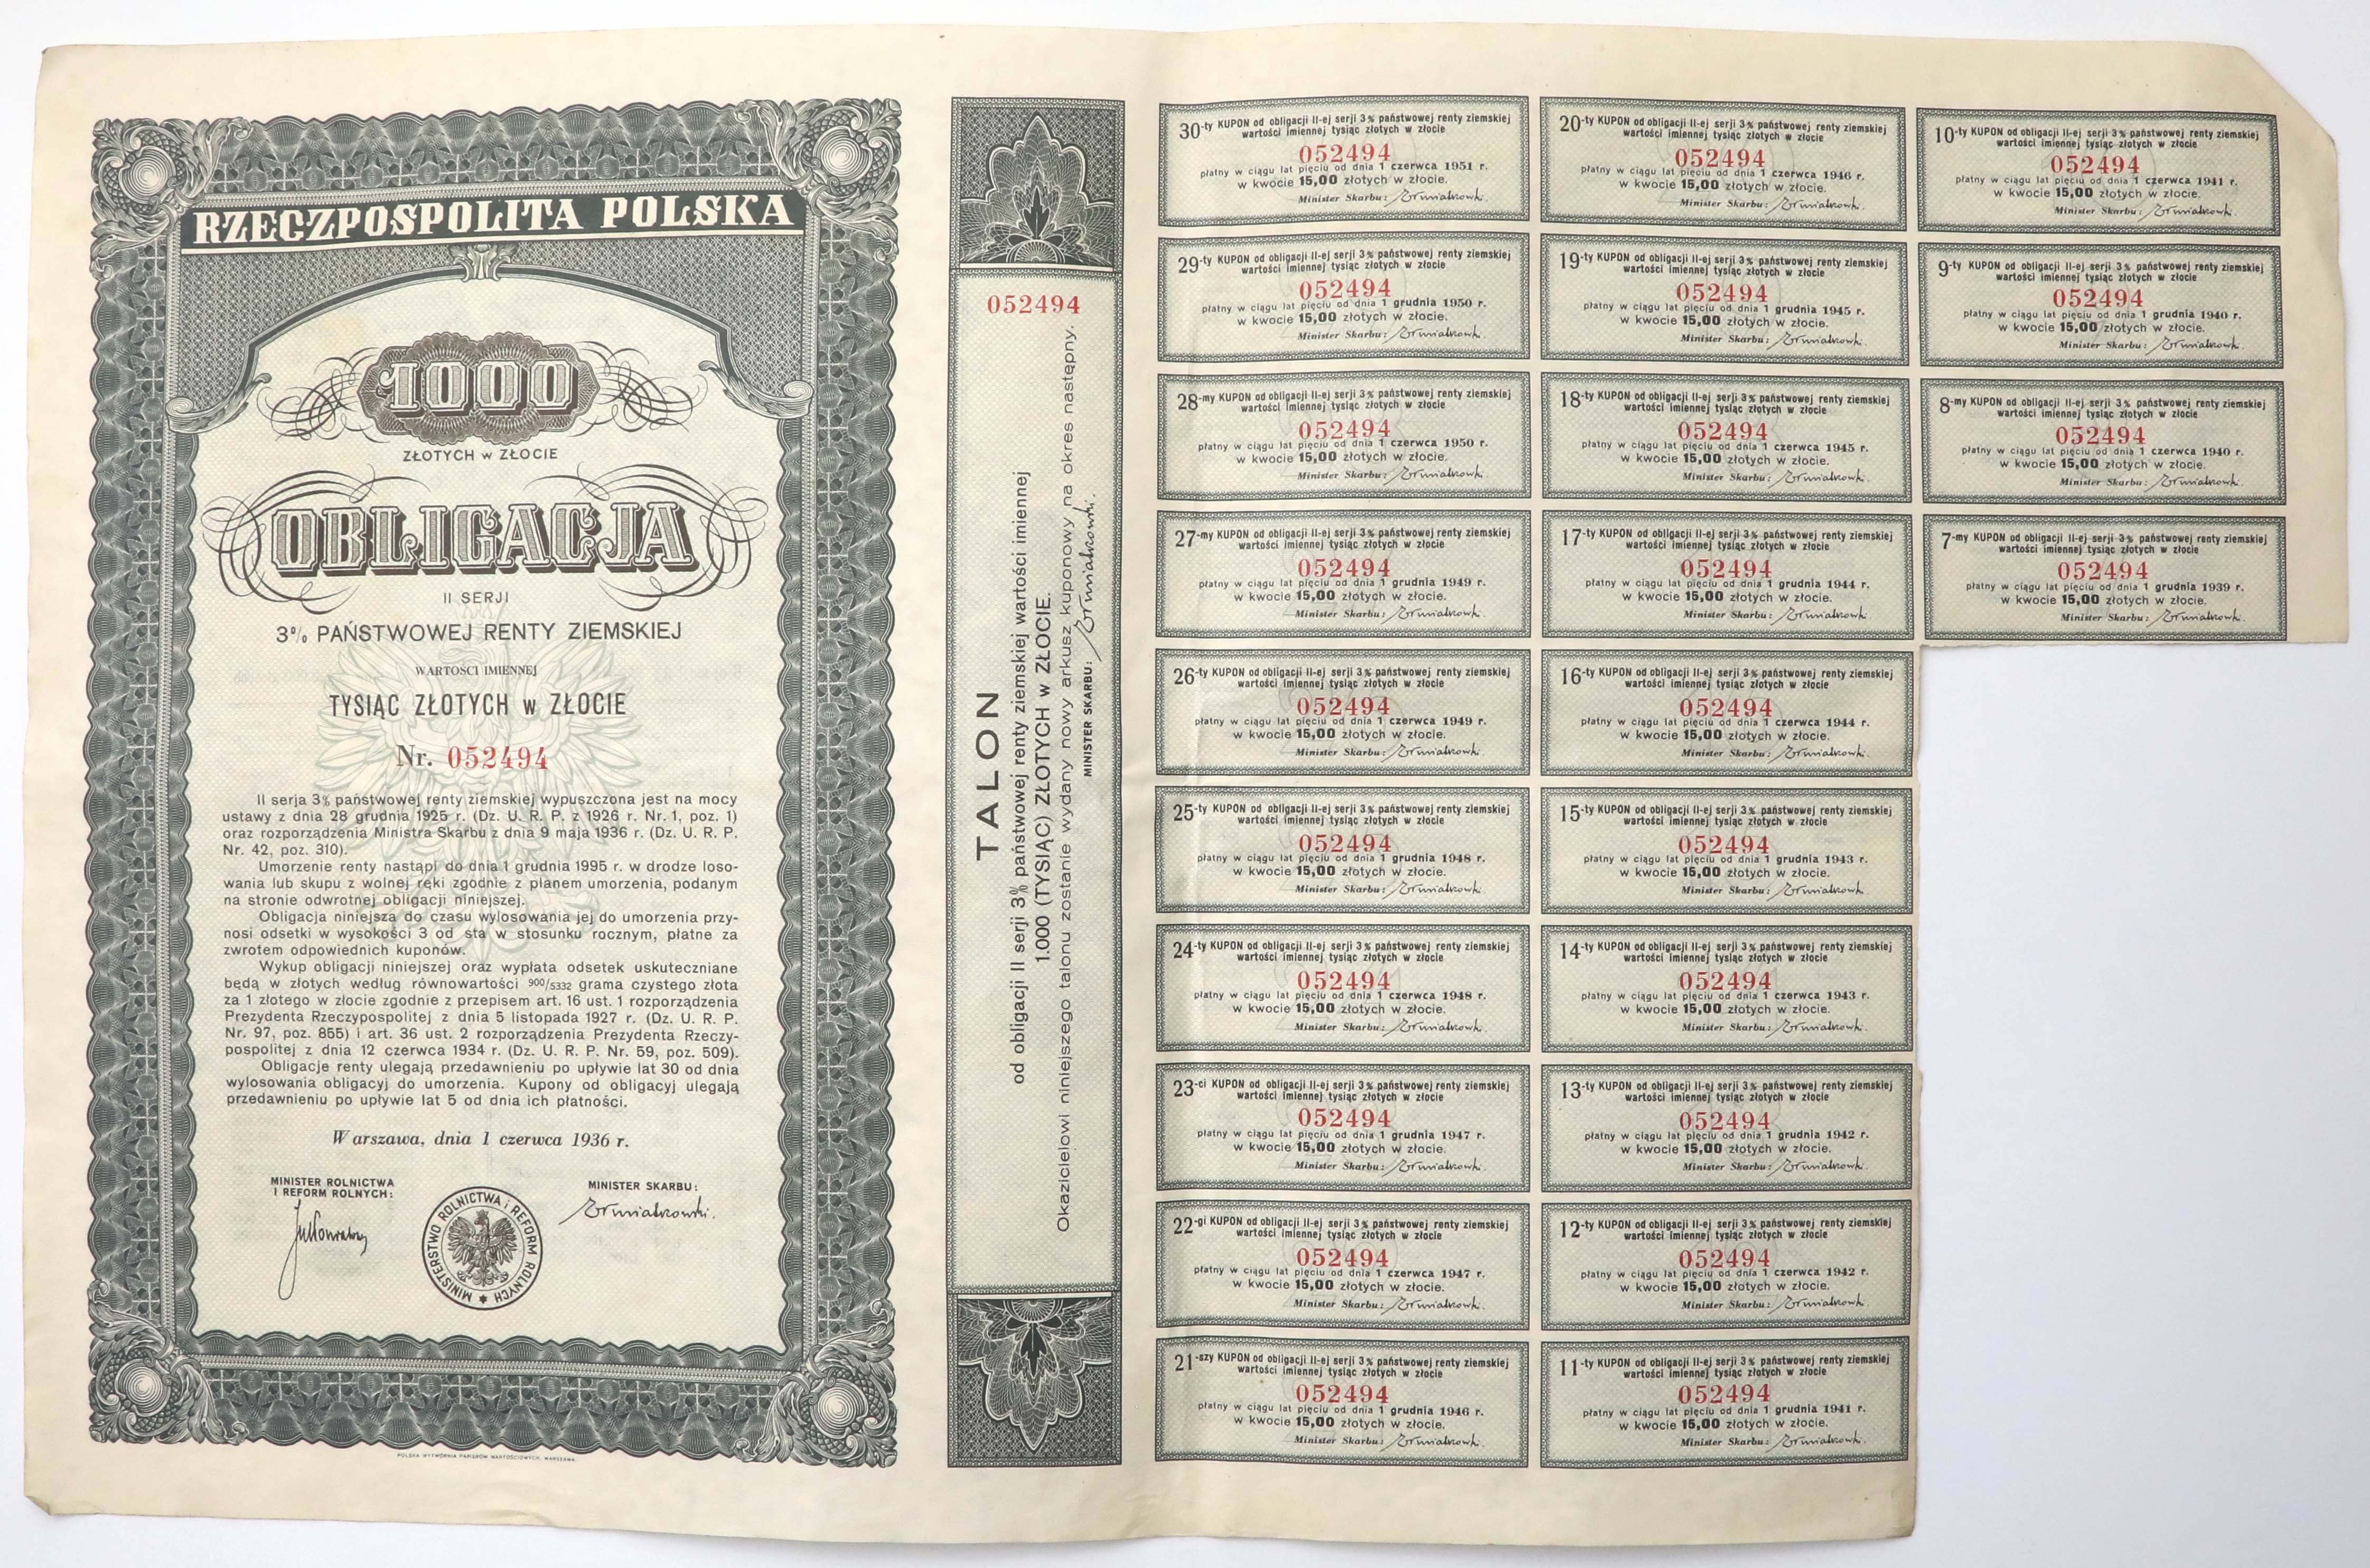 RZECZPOSPOLITA POLSKA
1000
ZŁOTYCH w ZŁOCIE
OBLIGACJA
II SERJI
3% PAŃSTWOWEJ RENTY ZIEMSKIEJ
WARTOŚCI IMIENNEJ
TYSIĄC ZŁOTYCH w ZŁOCIE
Nr. 052494
II serja 3% państwowej renty ziemskiej wypuszczona jest na mocy
ustawy z dnia 28 grudnia 1925 r. (Dz. U. R. P. z 1926 r. Nr. 1, poz. 1)
oraz rozporządzenia Ministra Skarbu z dnia 9 maja 1936 r. (Dz. U. R. P.
Nr. 42, poz. 310).
Umorzenie renty nastąpi do dnia 1 grudnia 1995 r. w drodze loso-
wania lub skupu z wolnej ręki zgodnie z planem umorzenia, podanym
na stronie odwrotnej obligacji niniejszej.
Obligacja niniejsza do czasu wylosowania jej do umorzenia przy-
nosi odsetki w wysokości 3 od sta w stosunku rocznym, płatne za
zwrotem odpowiednich kuponów.
Wykup obligacji niniejszej oraz wypłata odsetek uskuteczniane
będą w złotych według równowartości 900/5332 grama czystego złota
za 1 złotego w złocie zgodnie z przepisem art. 16 ust. 1 rozporządzenia
Prezydenta Rzeczypospolitej z dnia 5 listopada 1927 r. (Dz. U. R. P.
Nr. 97, poz. 855) i art. 36 ust. 2 rozporządzenia Prezydenta Rzeczy-
pospolitej z dnia 12 czerwca 1934 r. (Dz. U. R. P. Nr. 59, poz. 509).
Obligacje renty ulegają przedawnieniu po upływie lat 30 od dnia
wylosowania obligacyj do umorzenia. Kupony od obligacyj ulegają
przedawnieniu po upływie lat 5 od dnia ich płatności.
Warszawa, dnia 1 czerwca 1936 r.
MINISTER ROLNICTWA
I REFORM ROLNYCH:
MINISTERSTWO ROLNICTWA i REFORM ROLNYCH
MINISTER SKARBU:
POLSKA WYTWÓRNIA PAPIERÓW WARTOŚCIOWYCH, WARSZAWA.
052494
TALON
od obligacji II serji 3% państwowej renty ziemskiej wartości imiennej
1.000 (TYSIĄC) ZŁOTYCH w ZŁOCIE.
Okazicielowi niniejszego talonu zostanie wydany nowy arkusz kuponowy na okres następny.
MINISTER SKARBU:
30-ty KUPON od obligacji II-ej serji 3% państwowej renty ziemskiej
wartości imiennej tysiąc złotych w złocie
052494
płatny w ciągu lat pięciu od dnia 1 czerwca 1951 r.
w kwocie 15,00 złotych w złocie.
Minister Skarbu:
29-ty KUPON od obligacji II-ej serji 3% państwowej renty ziemskiej
wartości imiennej tysiąc złotych w złocie
052494
płatny w ciągu lat pięciu od dnia 1 grudnia 1950 r.
w kwocie 15,00 złotych w złocie.
Minister Skarbu:
28-my KUPON od obligacji II-ej serji 3% państwowej renty ziemskiej
wartości imiennej tysiąc złotych w złocie
052494
płatny w ciągu lat pięciu od dnia 1 czerwca 1950 r.
w kwocie 15,00 złotych w złocie.
Minister Skarbu:
27-my KUPON od obligacji II-ej serji 3% państwowej renty ziemskiej
wartości imiennej tysiąc złotych w złocie
052494
płatny w ciągu lat pięciu od dnia 1 grudnia 1949 r.
w kwocie 15,00 złotych w złocie.
Minister Skarbu:
26-ty KUPON od obligacji II-ej serji 3% państwowej renty ziemskiej
wartości imiennej tysiąc złotych w złocie
052494
płatny w ciągu lat pięciu od dnia 1 czerwca 1949 r.
w kwocie 15,00 złotych w złocie.
Minister Skarbu:
25-ty KUPON od obligacji II-ej serji 3% państwowej renty ziemskiej
wartości imiennej tysiąc złotych w złocie
052494
płatny w ciągu lat pięciu od dnia 1 grudnia 1948 r.
w kwocie 15,00 złotych w złocie.
Minister Skarbu:
24-ty KUPON od obligacji II-ej serji 3% państwowej renty ziemskiej
wartości imiennej tysiąc złotych w złocie
052494
płatny w ciągu lat pięciu od dnia 1 czerwca 1948 r.
w kwocie 15,00 złotych w złocie.
Minister Skarbu:
23-ci KUPON od obligacji II-ej serji 3% państwowej renty ziemskiej
wartości imiennej tysiąc złotych w złocie
052494
płatny w ciągu lat pięciu od dnia 1 grudnia 1947 r.
w kwocie 15,00 złotych w złocie.
Minister Skarbu:
22-gi KUPON od obligacji II-ej serji 3% państwowej renty ziemskiej
wartości imiennej tysiąc złotych w złocie
052494
płatny w ciągu lat pięciu od dnia 1 czerwca 1947 r.
w kwocie 15,00 złotych w złocie.
Minister Skarbu:
21-szy KUPON od obligacji II-ej serji 3% państwowej renty ziemskiej
wartości imiennej tysiąc złotych w złocie
052494
płatny w ciągu lat pięciu od dnia 1 grudnia 1946 r.
w kwocie 15,00 złotych w złocie.
Minister Skarbu:
20-ty KUPON od obligacji II-ej serji 3% państwowej renty ziemskiej
wartości imiennej tysiąc złotych w złocie
052494
płatny w ciągu lat pięciu od dnia 1 czerwca 1946 r.
w kwocie 15,00 złotych w złocie.
Minister Skarbu:
19-ty KUPON od obligacji II-ej serji 3% państwowej renty ziemskiej
wartości imiennej tysiąc złotych w złocie
052494
płatny w ciągu lat pięciu od dnia 1 grudnia 1945 r.
w kwocie 15,00 złotych w złocie.
Minister Skarbu:
18-ty KUPON od obligacji II-ej serji 3% państwowej renty ziemskiej
wartości imiennej tysiąc złotych w złocie
052494
płatny w ciągu lat pięciu od dnia 1 czerwca 1945 r.
w kwocie 15,00 złotych w złocie.
Minister Skarbu:
17-ty KUPON od obligacji II-ej serji 3% państwowej renty ziemskiej
wartości imiennej tysiąc złotych w złocie
052494
płatny w ciągu lat pięciu od dnia 1 grudnia 1944 r.
w kwocie 15,00 złotych w złocie.
Minister Skarbu:
16-ty KUPON od obligacji II-ej serji 3% państwowej renty ziemskiej
wartości imiennej tysiąc złotych w złocie
052494
płatny w ciągu lat pięciu od dnia 1 czerwca 1944 r.
w kwocie 15,00 złotych w złocie.
Minister Skarbu:
15-ty KUPON od obligacji II-ej serji 3% państwowej renty ziemskiej
wartości imiennej tysiąc złotych w złocie
052494
płatny w ciągu lat pięciu od dnia 1 grudnia 1943 r.
w kwocie 15,00 złotych w złocie.
Minister Skarbu:
14-ty KUPON od obligacji II-ej serji 3% państwowej renty ziemskiej
wartości imiennej tysiąc złotych w złocie
052494
płatny w ciągu lat pięciu od dnia 1 czerwca 1943 r.
w kwocie 15,00 złotych w złocie.
Minister Skarbu:
13-ty KUPON od obligacji II-ej serji 3% państwowej renty ziemskiej
wartości imiennej tysiąc złotych w złocie
052494
płatny w ciągu lat pięciu od dnia 1 grudnia 1942 r.
w kwocie 15,00 złotych w złocie.
Minister Skarbu:
12-ty KUPON od obligacji II-ej serji 3% państwowej renty ziemskiej
wartości imiennej tysiąc złotych w złocie
052494
płatny w ciągu lat pięciu od dnia 1 czerwca 1942 r.
w kwocie 15,00 złotych w złocie.
Minister Skarbu:
11-ty KUPON od obligacji II-ej serji 3% państwowej renty ziemskiej
wartości imiennej tysiąc złotych w złocie
052494
płatny w ciągu lat pięciu od dnia 1 grudnia 1941 r.
w kwocie 15,00 złotych w złocie.
Minister Skarbu:
10-ty KUPON od obligacji II-ej serji 3% państwowej renty ziemskiej
wartości imiennej tysiąc złotych w złocie
052494
płatny w ciągu lat pięciu od dnia 1 czerwca 1941 r.
w kwocie 15,00 złotych w złocie.
Minister Skarbu:
9-ty KUPON od obligacji II-ej serji 3% państwowej renty ziemskiej
wartości imiennej tysiąc złotych w złocie
052494
płatny w ciągu lat pięciu od dnia 1 grudnia 1940 r.
w kwocie 15,00 złotych w złocie.
Minister Skarbu:
8-my KUPON od obligacji II-ej serji 3% państwowej renty ziemskiej
wartości imiennej tysiąc złotych w złocie
052494
płatny w ciągu lat pięciu od dnia 1 czerwca 1940 r.
w kwocie 15,00 złotych w złocie.
Minister Skarbu:
7-my KUPON od obligacji II-ej serji 3% państwowej renty ziemskiej
wartości imiennej tysiąc złotych w złocie
052494
płatny w ciągu lat pięciu od dnia 1 grudnia 1939 r.
w kwocie 15,00 złotych w złocie.
Minister Skarbu: